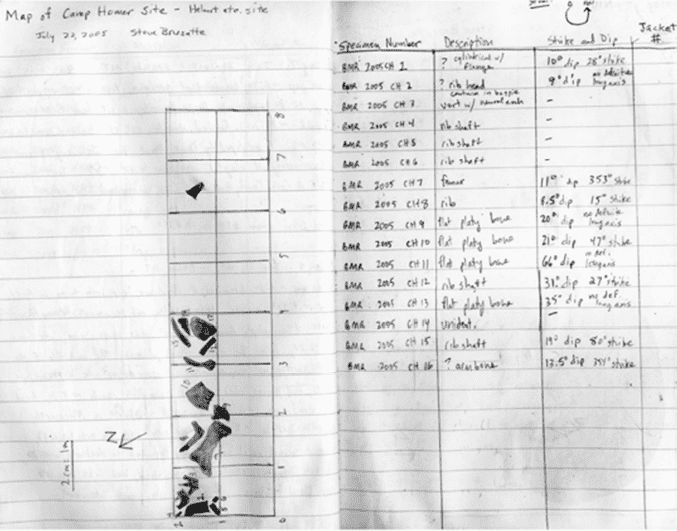 Map of Camp Homer Site -
July 22, 2005 Steve Brusatte
2 cm: 1m
N
8
7
6
5
4
3
2
1
0
2 1 0
Specimen Number Description Strike and Dip Jacket #
BMR 2005 CH 1 ? cylindrical w/ flange 10° dip 28° strike
BMR 2005 CH 2 ? rib head 9° dip no definite long axis
BMR 2005 CH 3 vert w/ neural arch -
BMR 2005 CH 4 rib shaft -
BMR 2005 CH 5 rib shaft -
BMR 2005 CH 6 rib shaft -
BMR 2005 CH 7 femur 11° dip 353° strike
BMR 2005 CH 8 rib 8.5° dip 15° strike
BMR 2005 CH 9 flat platy bone 20° dip no definite long axis
BMR 2005 CH 10 flat platy bone 21° dip 47° strike
BMR 2005 CH 11 flat platy bone 66° dip no def. long axis
BMR 2005 CH 12 rib shaft 31° dip 27° strike
BMR 2005 CH 13 flat platy bone 35° dip no def. long axis
BMR 2005 CH 14 unident. -
BMR 2005 CH 15 rib shaft 19° dip 80° strike
BMR 2005 CH 16 ? arm bone 13.5° dip strike